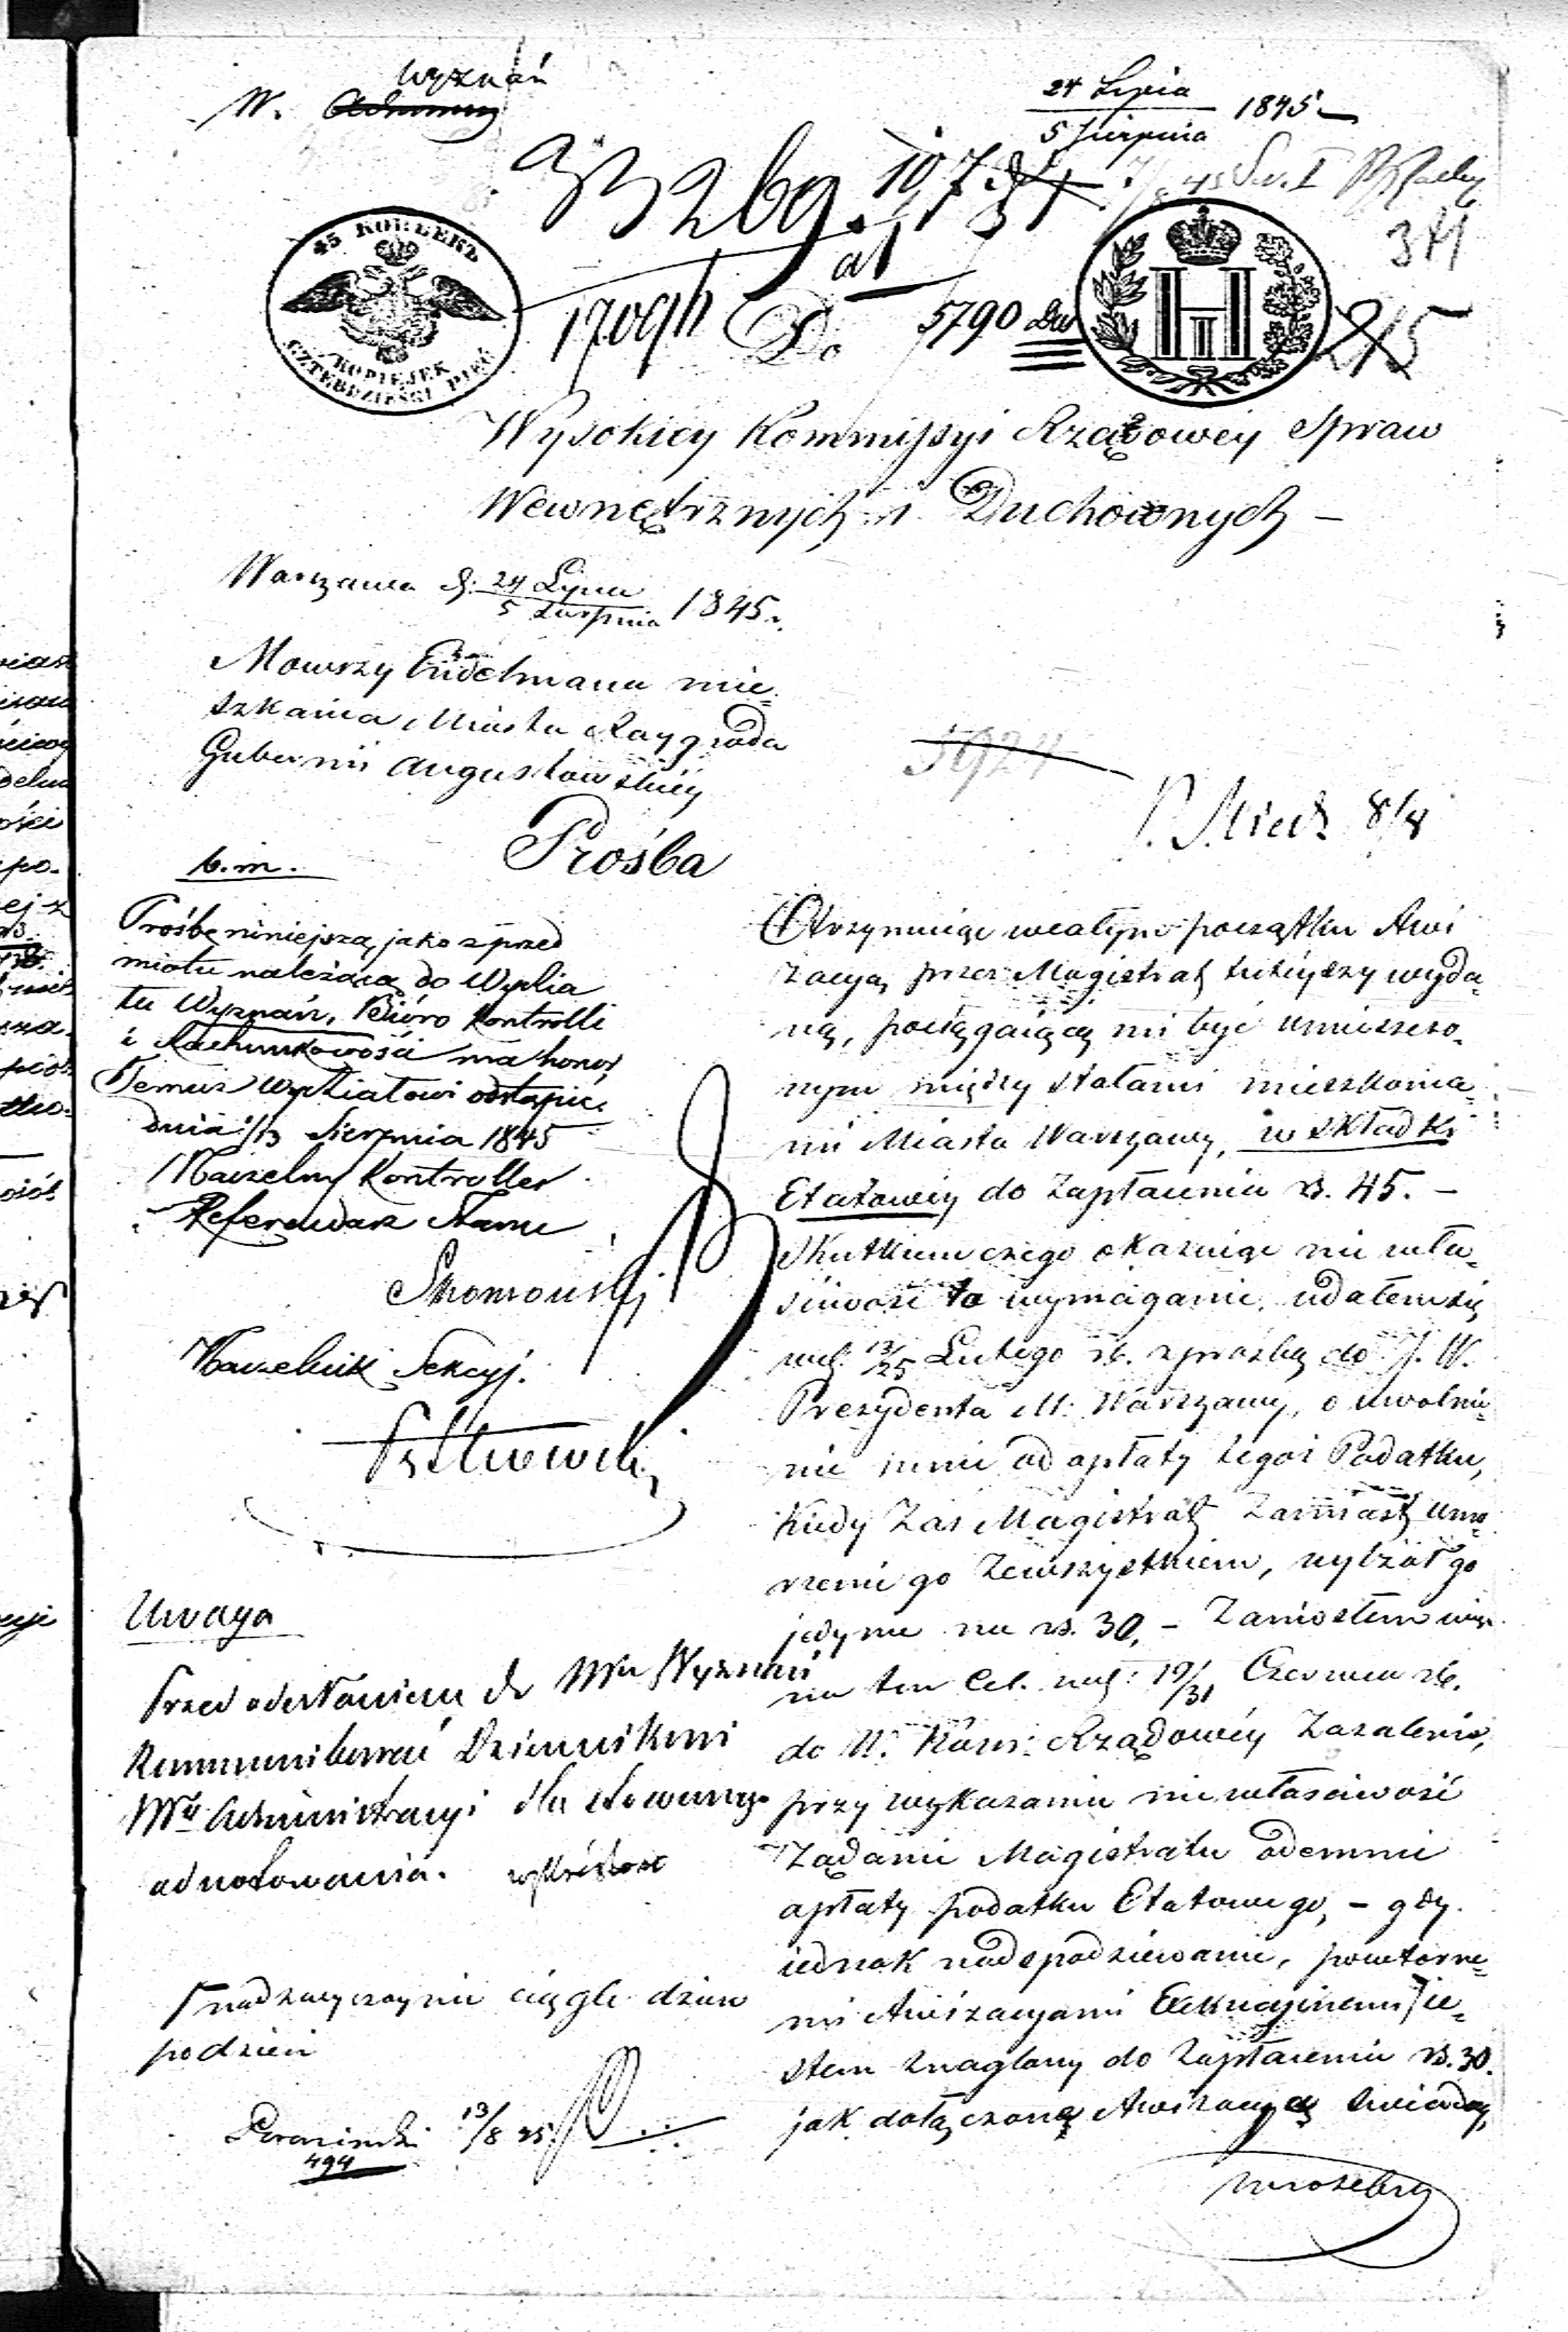 W. Wyznań
24 Lipca
5 Sierpnia 1845
10784
17091
Do
5790
45 КОПѢЕКЪ
KOPIEJEK
CZTERDZIEŚCI PIĘĆ
Wysokiey Kommissyi Rządowey Spraw
Wewnętrznych i Duchownych –
Warszawa d. 24 Lipca
5 Sierpnia 1845 r.
Mowszy Endelmana mie=
szkańca Miasta Raygroda
Gubernii Augustowskiéy
5924
8/8
Prośba
b. m.
Prośbę niniejszą, jako z przed
miotu należącą do Wydia
łu Wyznań, Bióro Kontrolli
i Rachunkowości ma honor
Temuż Wydziałowi odstąpić.
dnia 1/13 Sierpnia 1845
Naczelny Kontroller
Referendarz Stanu
Naczelnik Sekcyi.
Uwaga
Przed odesłaniem do Włu Wyznań
Kommunikować Dziennikowi
Włu Administracyi dla stosownego
adnotowania.
nadzwyczaynie ciągle dzień
podzień
13/8 45.
494
Otrzymując wcałym początku Awi
zacyą, przez Magistrat tuteyszy wyda=
ną, pociągaiącą mi być umieszczo=
nym między stałami mieszkańca=
mi Miasta Warszawy, w składki
Etatowéy do zapłacenia rs. 45. –
Skutkiem czego okazuiąc nie wła=
ściwość to wymaganie, udałem się
nad. 13/25 Lutego rb. z prośbą do J. W.
Prezydenta M. Warszawy, o uwolnie=
nie mnie od opłaty tegoż Podatku,
kiedy Zaś Magistrat zamiast umo=
rzenie go zewszystkiem, zniżał go
jedynie na rs. 30. – Zaniosłem więc
na ten cel. nad: 19/31 Czerwca rb.
do W. Kom: Rządowéy Zażalenie,
przy wykazaniu nie właściwość
Żądanie Magistratu odemnie
opłaty podatku Etatowego, – gdy
iednak nadspodziewanie, powtórne=
mi Awizacyami Exekucyinemi ie=
stem znaglony do zapłacenia rs. 30.
jak dołączoną Awizacyą świadczy,